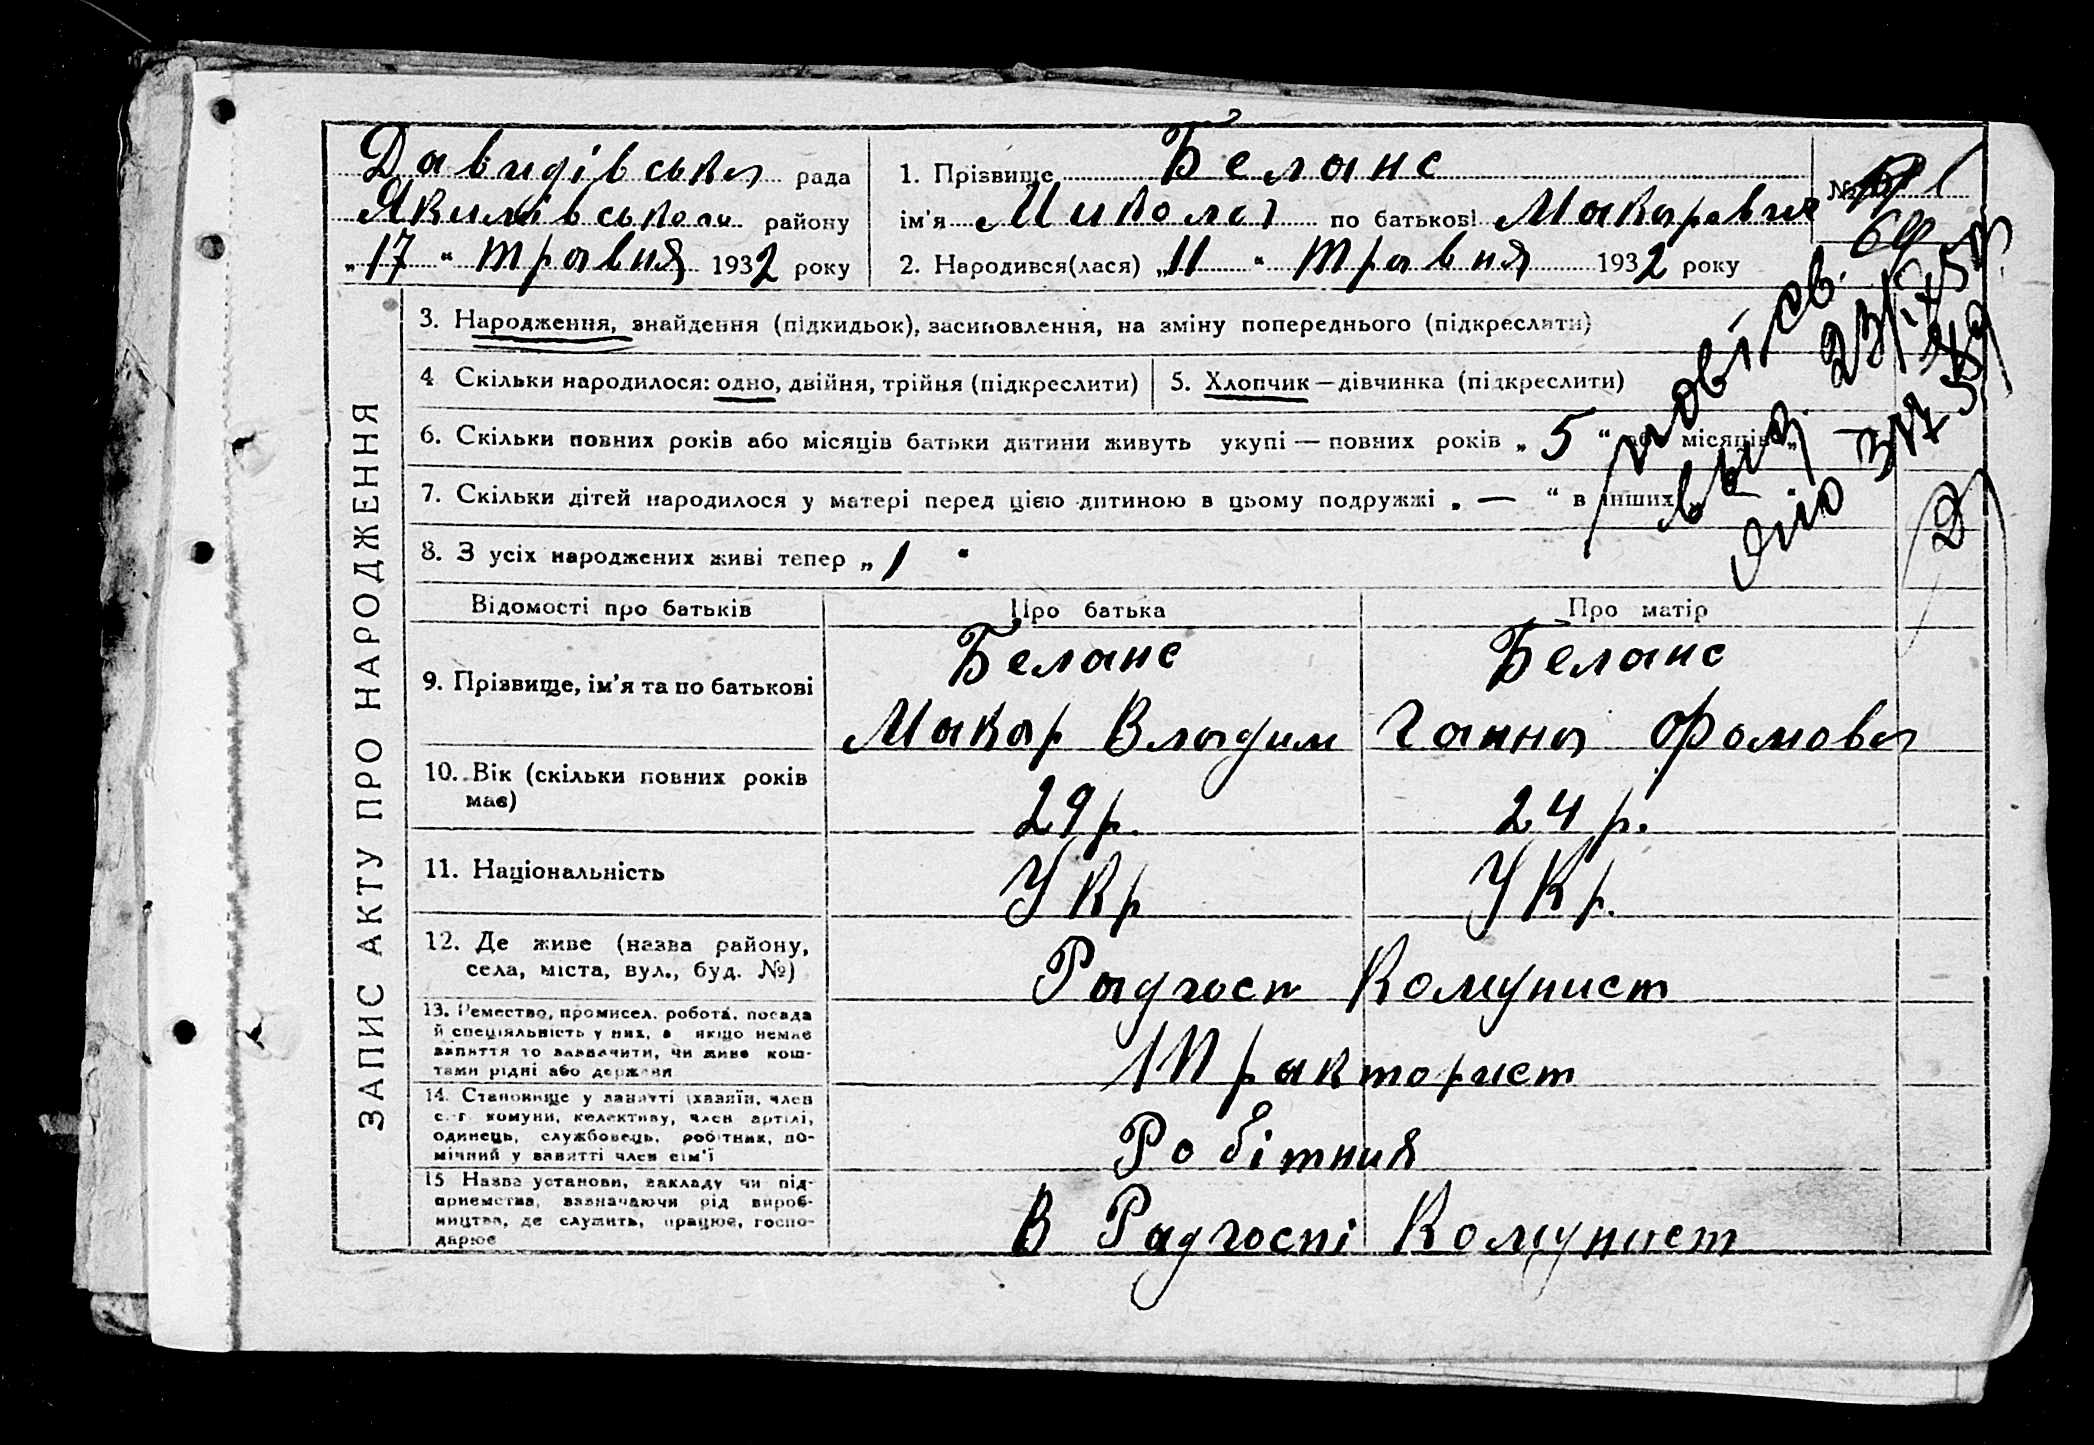 Давидівська рада
Якимівського району
„17“ травня 1932 року
1. Прізвище Беланс
ім'я Микола по батькові Макарович
№ 69
2. Народився(лася) „11“ травня 1932 року
ЗАПИС АКТУ ПРО НАРОДЖЕННЯ
3. Народження, знайдення (підкидьок), засиновлення, на зміну попереднього (підкреслити)
4 Скільки народилося: одно, двійня, трійня (підкреслити)
5. Хлопчик—дівчинка (підкреслити)
6. Скільки повних років або місяців батьки дитини живуть укупі — повних років „5“ або місяців „ —
7. Скільки дітей народилося у матері перед цією дитиною в цьому подружжі „ — “ в інших „
8. З усіх народжених живі тепер „1“
повт св.
23/
Відомості про батьків
Про батька
Про матір
9. Прізвище, ім'я та по батькові
Беланс
Макар Владим
Беланс
Ганна Фомова
10. Вік (скільки повних років має)
29 р.
24 р.
11. Національність
Укр
Укр.
12. Де живе (назва району, села, міста, вул., буд. №)
Радгосп Комунист
13. Ремество, промисел, робота, посада й спеціяльність у них, а якщо немає заняття то зазначити, чи живе коштами рідні або держави
Тракторист
14. Становище у занятті (хазяїн, член с.-г. комуни, колективу, член артілі, одинець, службовець, робітник, помічний у занятті член сім'ї
Робітник
15 Назва установи, закладу чи підприємства, зазначаючи рід виробництва, де служить, працює, господарює
В Радгоспі Комунист